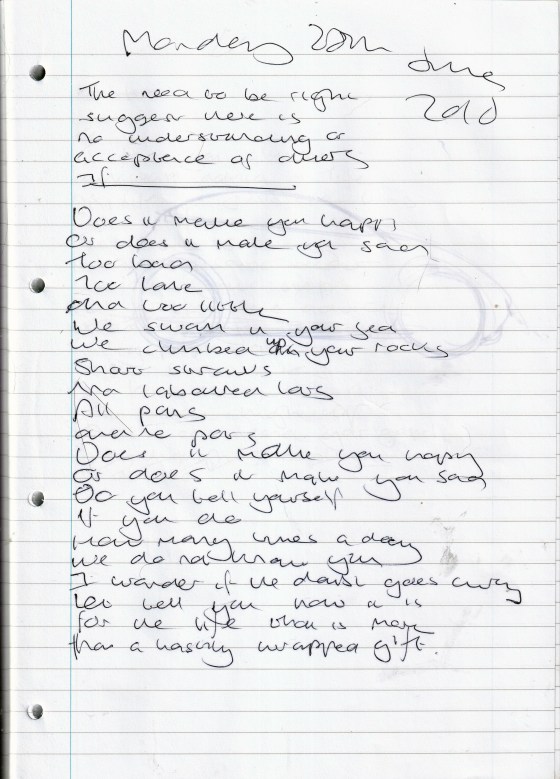 Monday 28th
June
2010
The need to be right
suggest there is
no understanding or
acceptance of others
If
Does it make you happy
Or does it make you sad
Too loud
Too late
And too little
We swam in your sea
We climbed up your rocks
Short
All
Does it make you happy
Or does it make you sad
Do you tell yourself
If you do
How many times a day
We do not know you
I wonder if the dark goes away
Let tell you how it is
for the life that is more
than a hastily wrapped gift.